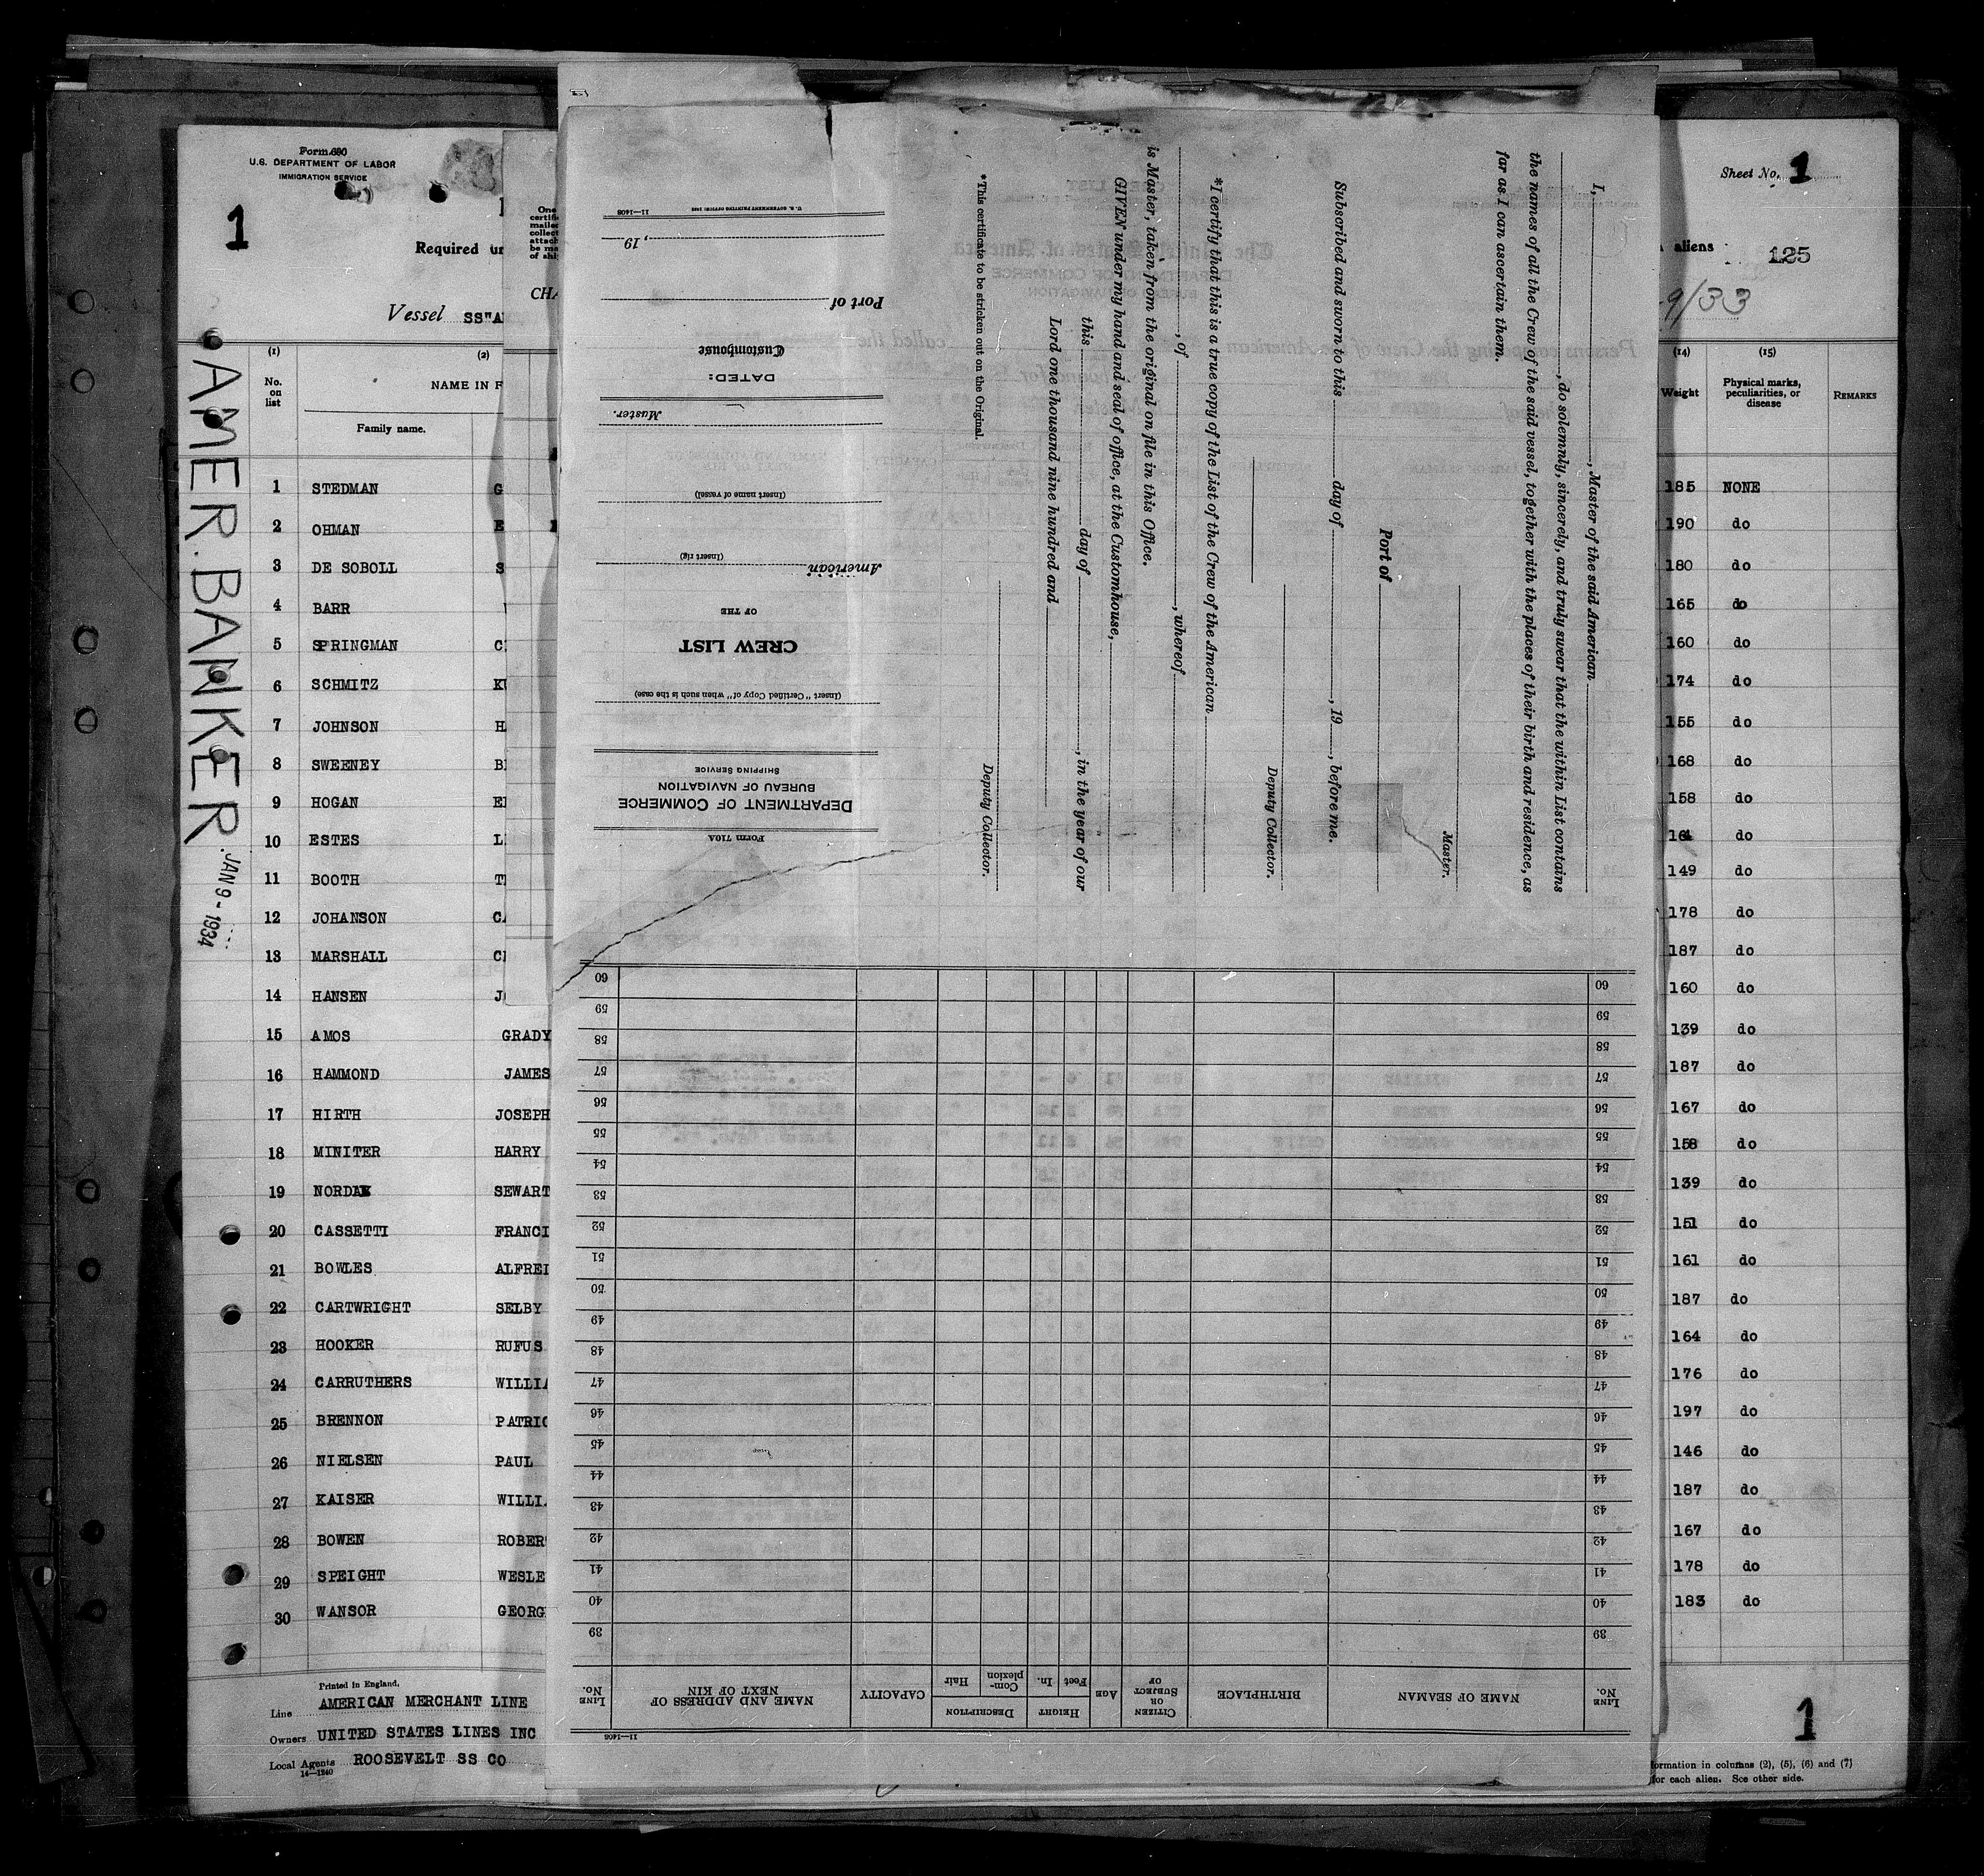 Form 680
U.S. DEPARTMENT OF LABOR
IMMIGRATION SERVICE
1
Required un
Vessel SS"A
AMER. BANKER.
JAN 9 - 1934
(1) (2)
No. on list
NAME IN F
Family name.
1 STEDMAN G
2 OHMAN E
3 DE SOBOLL S
4 BARR
5 SPRINGMAN C
6 SCHMITZ K
7 JOHNSON H
8 SWEENEY B
9 HOGAN E
10 ESTES L
11 BOOTH T
12 JOHANSON C
13 MARSHALL C
14 HANSEN J
15 AMOS GRADY
16 HAMMOND JAMES
17 HIRTH JOSEPH
18 MINITER HARRY
19 NORDAK SEWART
20 CASSETTI FRANCI
21 BOWLES ALFRE
22 CARTWRIGHT SELBY
23 HOOKER RUFUS
24 CARRUTHERS WILLIA
25 BRENNON PATRIC
26 NIELSEN PAUL
27 KAISER WILLI
28 BOWEN ROBER
29 SPEIGHT WESLE
30 WANSOR GEORG
Printed in England.
Line AMERICAN MERCHANT LINE
Owners UNITED STATES LINES INC
Local Agents ROOSEVELT SS CO
14—1240
One
certifi
mailed
collect
attach
be ma
of shi
CHA
Form 710A
DEPARTMENT OF COMMERCE
BUREAU OF NAVIGATION
SHIPPING SERVICE
(Insert "Certified Copy of" when such is the case)
CREW LIST
OF THE
American
(Insert rig)
(Insert name of vessel)
Master.
DATED:
Customhouse
Port of
, 19
11—1408 U. S. GOVERNMENT PRINTING OFFICE
I, , Master of the said American
, do solemnly, sincerely, and truly swear that the within List contains
the names of all the Crew of the said vessel, together with the places of their birth and residence, as
far as I can ascertain them.
Master.
Port of
Subscribed and sworn to this day of , 19 , before me.
Deputy Collector.
*I certify that this is a true copy of the List of the Crew of the American
, of , whereof
is Master, taken from the original on file in this Office.
GIVEN under my hand and seal of office, at the Customhouse,
this day of , in the year of our
Lord one thousand nine hundred and
Deputy Collector.
*This certificate to be stricken out on the Original.
11—1408
LINE No.
NAME OF SEAMAN
BIRTHPLACE
CITIZEN OR SUBJECT OF
AGE
HEIGHT
Feet In.
DESCRIPTION
Complexion Hair
CAPACITY
NAME AND ADDRESS OF NEXT OF KIN
LINE No.
39 39
40 40
41 41
42 42
43 43
44 44
45 45
46 46
47 47
48 48
49 49
50 50
51 51
52 52
53 53
54 54
55 55
56 56
57 57
58 58
59 59
60 60
Sheet No. 1
aliens 125
9/33
(14) (15)
Weight
Physical marks, peculiarities, or disease
REMARKS
185 NONE
190 do
180 do
165 do
160 do
174 do
155 do
168 do
158 do
164 do
149 do
178 do
187 do
160 do
139 do
187 do
167 do
158 do
139 do
151 do
161 do
187 do
164 do
176 do
197 do
146 do
187 do
167 do
178 do
183 do
1
formation in columns (2), (5), (6) and (7)
for each alien. See other side.